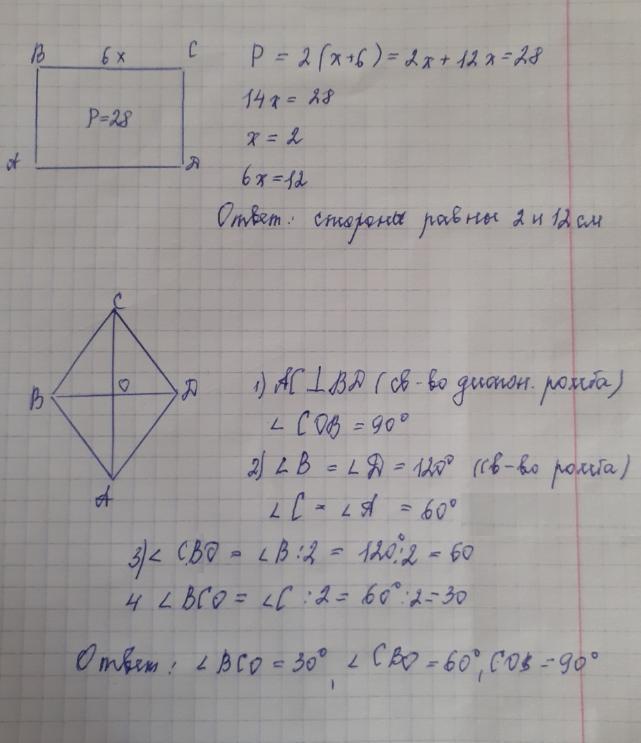 B 6x C
P = 2(x+6) = 2x + 12x = 28
P=28
14x = 28
x = 2
A Д
6x = 12
Ответ: стороны равны 2 и 12 см
C
B O Д
A
1) AC ⊥ BД (св-во диагон. ромба)
∠ COB = 90°
2) ∠ B = ∠ Д = 120° (св-во ромба)
∠ C = ∠ A = 60°
3) ∠ CBO = ∠ B : 2 = 120° : 2 = 60
4 ∠ BCO = ∠ C : 2 = 60° : 2 = 30
Ответ: ∠ BCO = 30°, ∠ CBO = 60°, COB = 90°